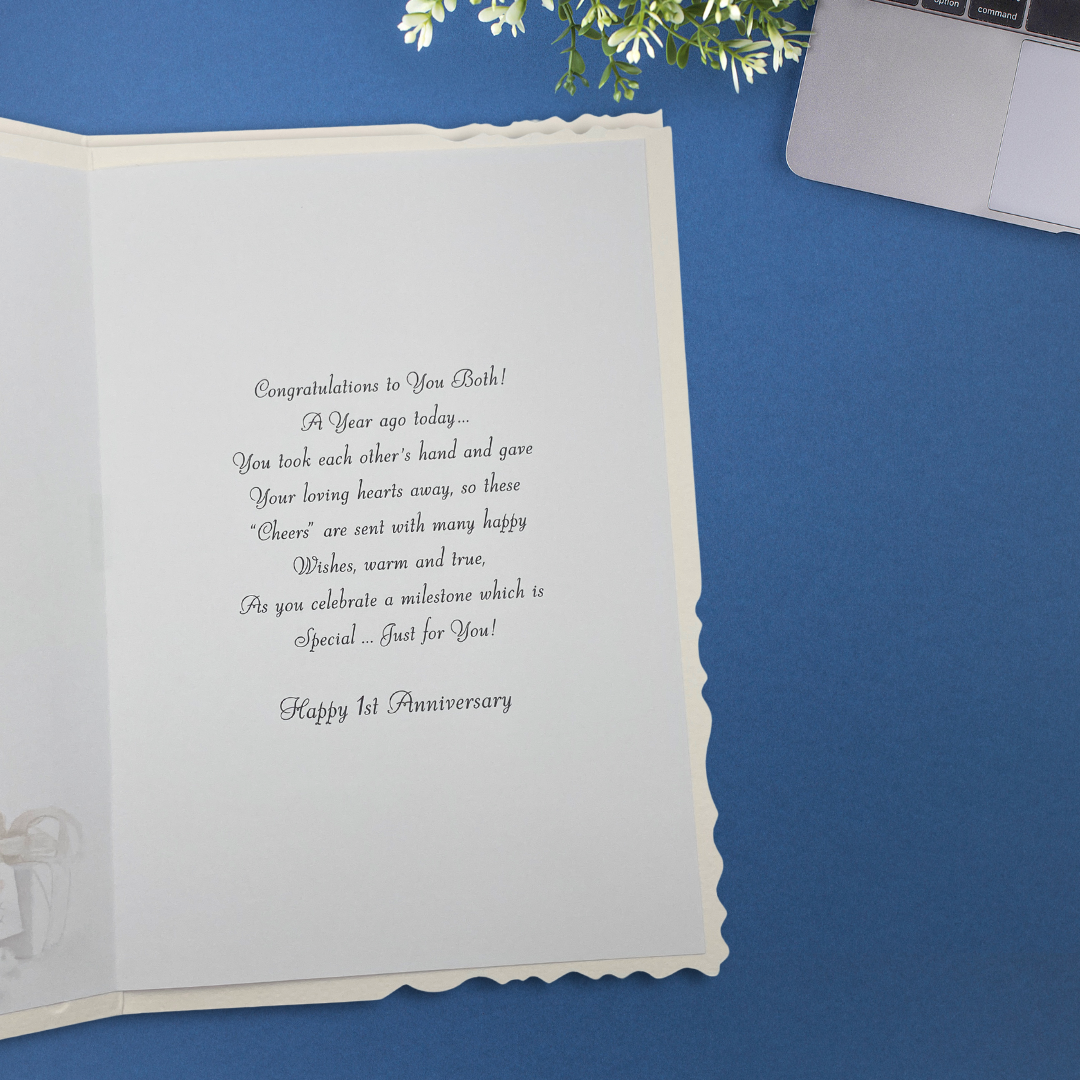 option
command
Congratulations to You Both!
A Year ago today...
You took each other's hand and gave
Your loving hearts away, so these
“Cheers” are sent with many happy
Wishes, warm and true,
As you celebrate a milestone which is
Special ... Just for You!
Happy 1st Anniversary